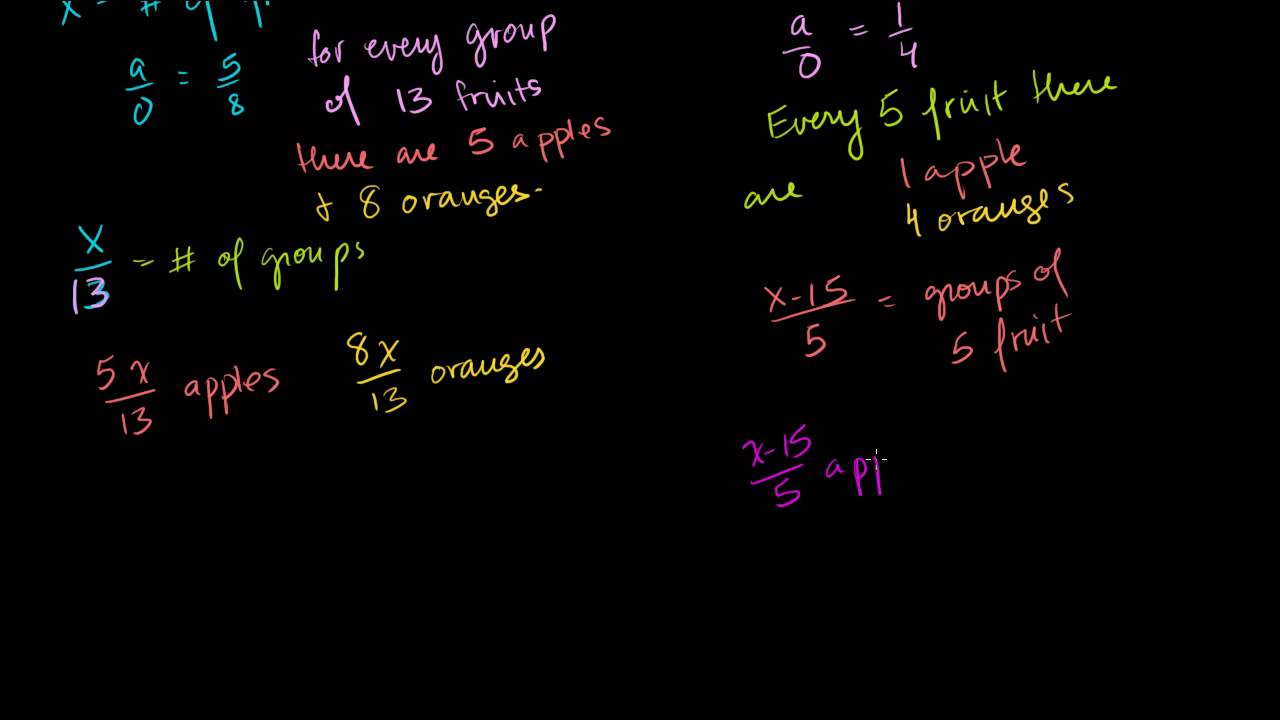 x = # of
a/0 = 5/8
for every group
of 13 fruits
there are 5 apples
+ 8 oranges.
x/13 = # of groups
5x/13 apples
8x/13 oranges
a/0 = 1/4
Every 5 fruit there
are
1 apple
4 oranges
x-15/5 = groups of
5 fruit
x-15/5 app